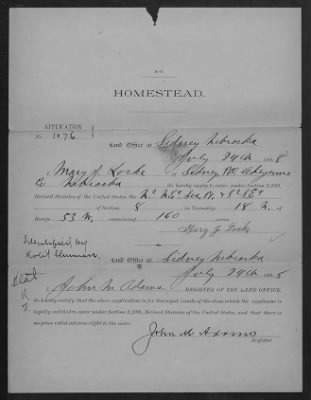 HOMESTEAD.
APPLICATION
No. 1076
Land Office at Sidney Nebraska
July 24th 188
I, Mary J. Locke of Sidney Cheyenne
Co Nebraska do hereby apply to enter, under Section 2289,
Revised Statutes of the United States, the
of Section 8 in Township 18 N. of
Range 53 W, containing 160 acres.
Mary J. Locke
Identified by
Land Office at Sidney Nebraska
July 24th 188
I, John M Adams REGISTER OF THE LAND OFFICE,
do hereby certify that the above application is for Surveyed Lands of the class which the applicant is
legally entitled to enter under Section 2289, Revised Statutes of the United States, and that there is
no prior valid adverse right to the same.
John M Adams
Register